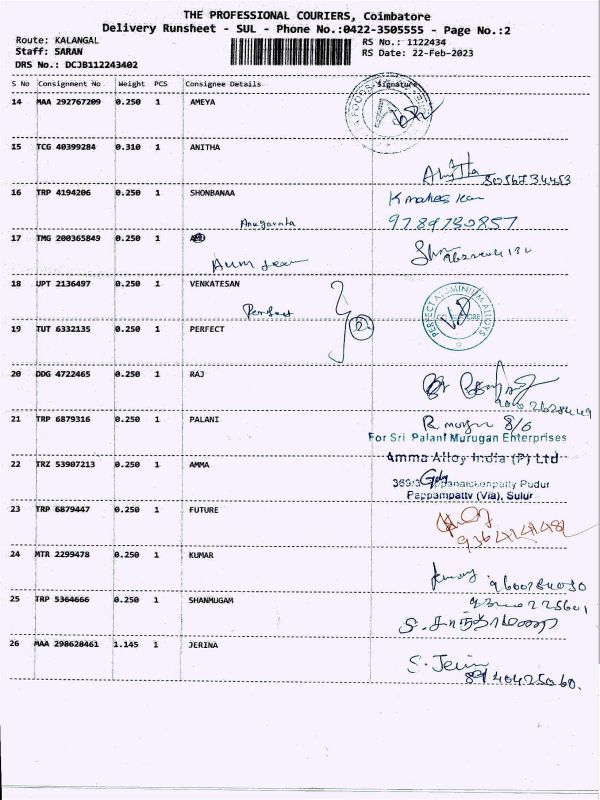 THE PROFESSIONAL COURIERS, Coimbatore
Delivery Runsheet - SUL - Phone No.:0422-3505555 - Page No.:2
Route: KALANGAL
RS No.: 1122434
Staff: SARAN
RS Date: 22-Feb-2023
DRS No.: DCJB112243402
S No Consignment No Weight PCS Consignee Details Signature
14 MAA 292767209 0.250 1 AMEYA
15 TCG 40399284 0.310 1 ANITHA
Anitha
16 TRP 4194206 0.250 1 SHONBANAA
9789730857
17 TMG 200365849 0.250 1
18 UPT 2136497 0.250 1 VENKATESAN
Perfect
2
PERFECT ALUMINIUM ALLOYS
19 TUT 6332135 0.250 1 PERFECT
20 DDG 4722465 0.250 1 RAJ
21 TRP 6879316 0.250 1 PALANI
For Sri Palani Murugan Enterprises
22 TRZ 53907213 0.250 1 AMMA
Amma Alloy India (P) Ltd
Pudur
Pappampatty (Via), Sulur
23 TRP 6879447 0.250 1 FUTURE
24 MTR 2299478 0.250 1 KUMAR
25 TRP 5364666 0.250 1 SHANMUGAM
26 MAA 298628461 1.145 1 JERINA